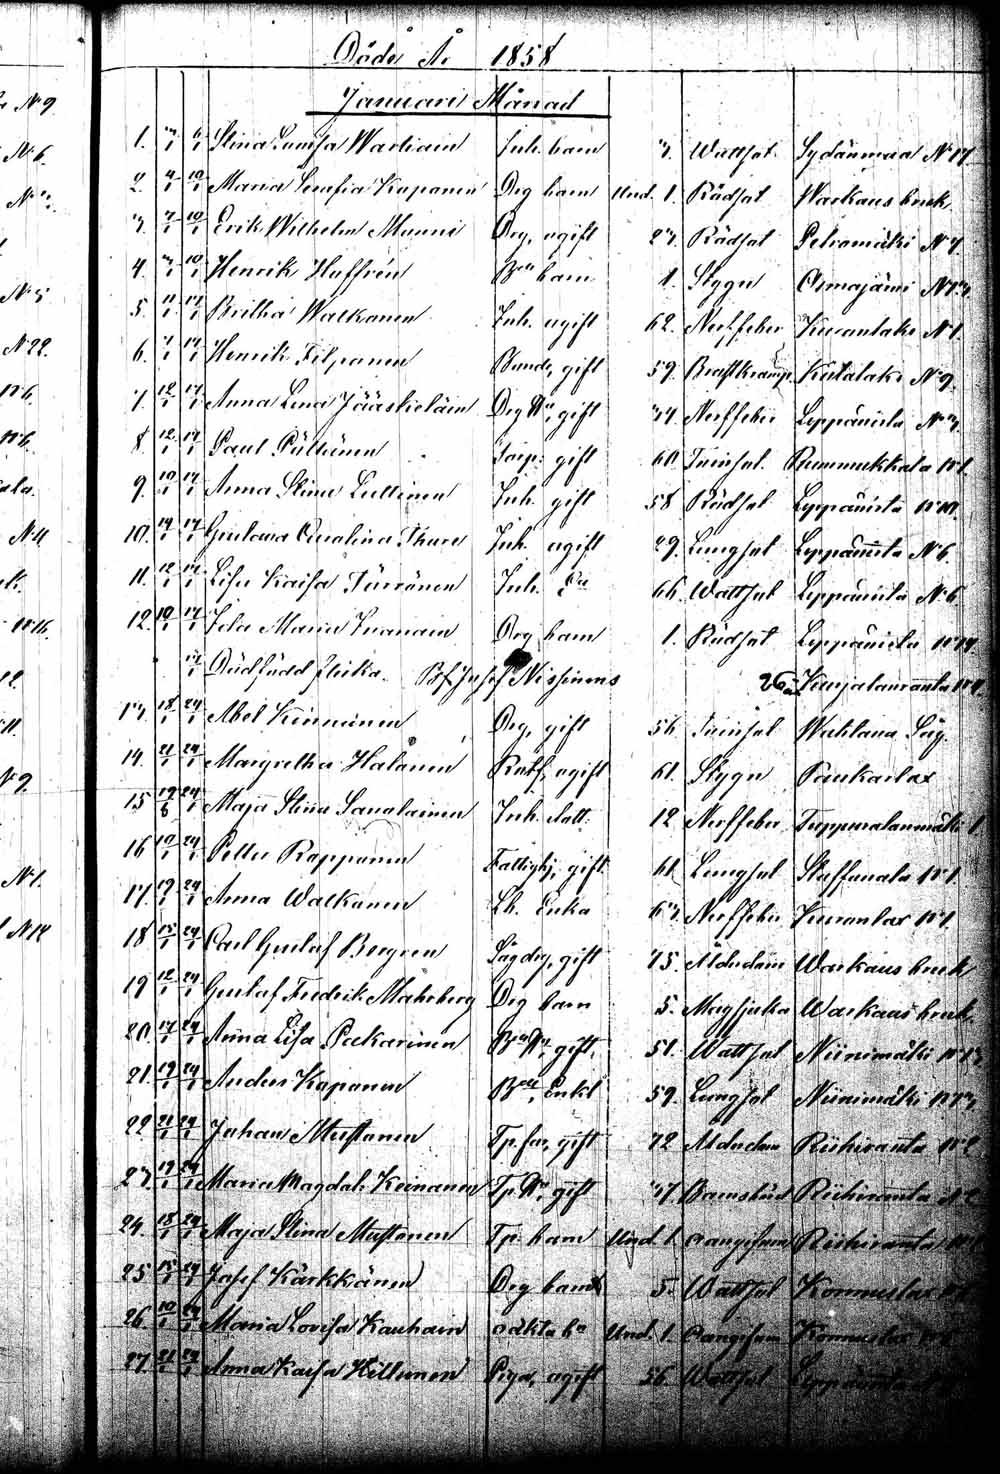 Döde År 1858
Januari Månad
1. 3/1 6/1 Stina Lovisa Wartiain Inh. barn 3. Wattsot Sydänmaa N 17
2. 4/1 10/1 Maria Serafia Kaponen Drg barn Und. 1. Rödsot Warkaus bruk
3. 7/1 10/1 Erik Wilhelm Munni Drg, ogift 23. Rödsot Petromäki N 7.
4. 3/1 10/1 Henrik Hoffrén Bde barn 1. Stygn Osmajärvi N 13.
5. 11/1 17/1 Britha Walkonen Inh. ogift 62. Nerffeber Kurantaks N 1.
6. 7/1 17/1 Henrik Filponen Bonde, gift 59. Brostkramp Kutalaks N 9.
7. 12/1 17/1 Anna Lena Jääskeläin Drg Hu, gift 37. Nerffeber Leppävirta N 3.
8. 12/1 17/1 Paul Pulkinen Torp. gift 60. Tvinsot. Rummukkala N 1.
9. 10/1 17/1 Anna Stina Luttinen Inh. gift 58 Rödsot Leppävirta N 10.
10. 14/1 17/1 Gustava Carolina Thure Inh. ogift 29. Lungsot Leppävirta N 6.
11. 12/1 17/1 Lisa Kaisa Turrönen Inh. Ea 66. Wattsot Leppävirta N 6.
12. 10/1 17/1 Ida Maria Inanain Drg barn 1. Rödsot Leppävirta N 17
17/1 Dödfödd flicka. Bf. Josef Nissinens 26 Kurjalanranta N 4.
13. 18/1 24/1 Abel Kinnunen Drg, gift 56 Tvinsot Wehtana Säg.
14. 21/1 24/1 Margretha Halonen Rotf, ogift 61. Stygn Paukarlax
15 19/1 24/1 Maja Stina Savolainen Inh. dott. 12 Nerffeber Tuppuralanmäki 1.
16 10/1 24/1 Petter Rapponen Fattighj, gift 61. Lungsot Staffanala N 1.
17. 19/1 24/1 Anna Walkonen Lh. Enka 63. Nerffeber Kuronlax N 1
18 15/1 24/1 Carl Gustaf Bergren Sågdrg, gift 75. Ålderdom Warkaus bruk
19 12/1 24/1 Gustaf Fredrik Mahrberg Drg barn 5. Magsjuka Warkaus bruk.
20. 17/1 24/1 Anna Lisa Pekarinen Bde Hu, gift, 51. Wattsot Niinimäki N 13
21. 19/1 24/1 Anders Kaponen Bde, Enkl 59. Lungsot Niinimäki N 3
22 21/1 24/1 Johan Mustonen Tp. far, gift 72 Ålderdom Riihiranta N 2
23. 19/1 24/1 Maria Magdal. Koinanen Tp. Hu, gift 37. Barnsbörd Riihiranta N 2
24. 18/1 24/1 Maja Stina Mustonen Tp. barn Und. 1. Oangifven Riihiranta
25 15/1 24/1 Josef Kärkkäinen Drg barn 5. Wattsot Konnuslax
26. 10/1 24/1 Maria Lovisa Kauhain oäkta bn Und. 1. Oangifven Konnuslax
27. 21/1 24/1 Anna Kaisa Hiltunen Piga, ogift 56. Wattsot Leppävirta